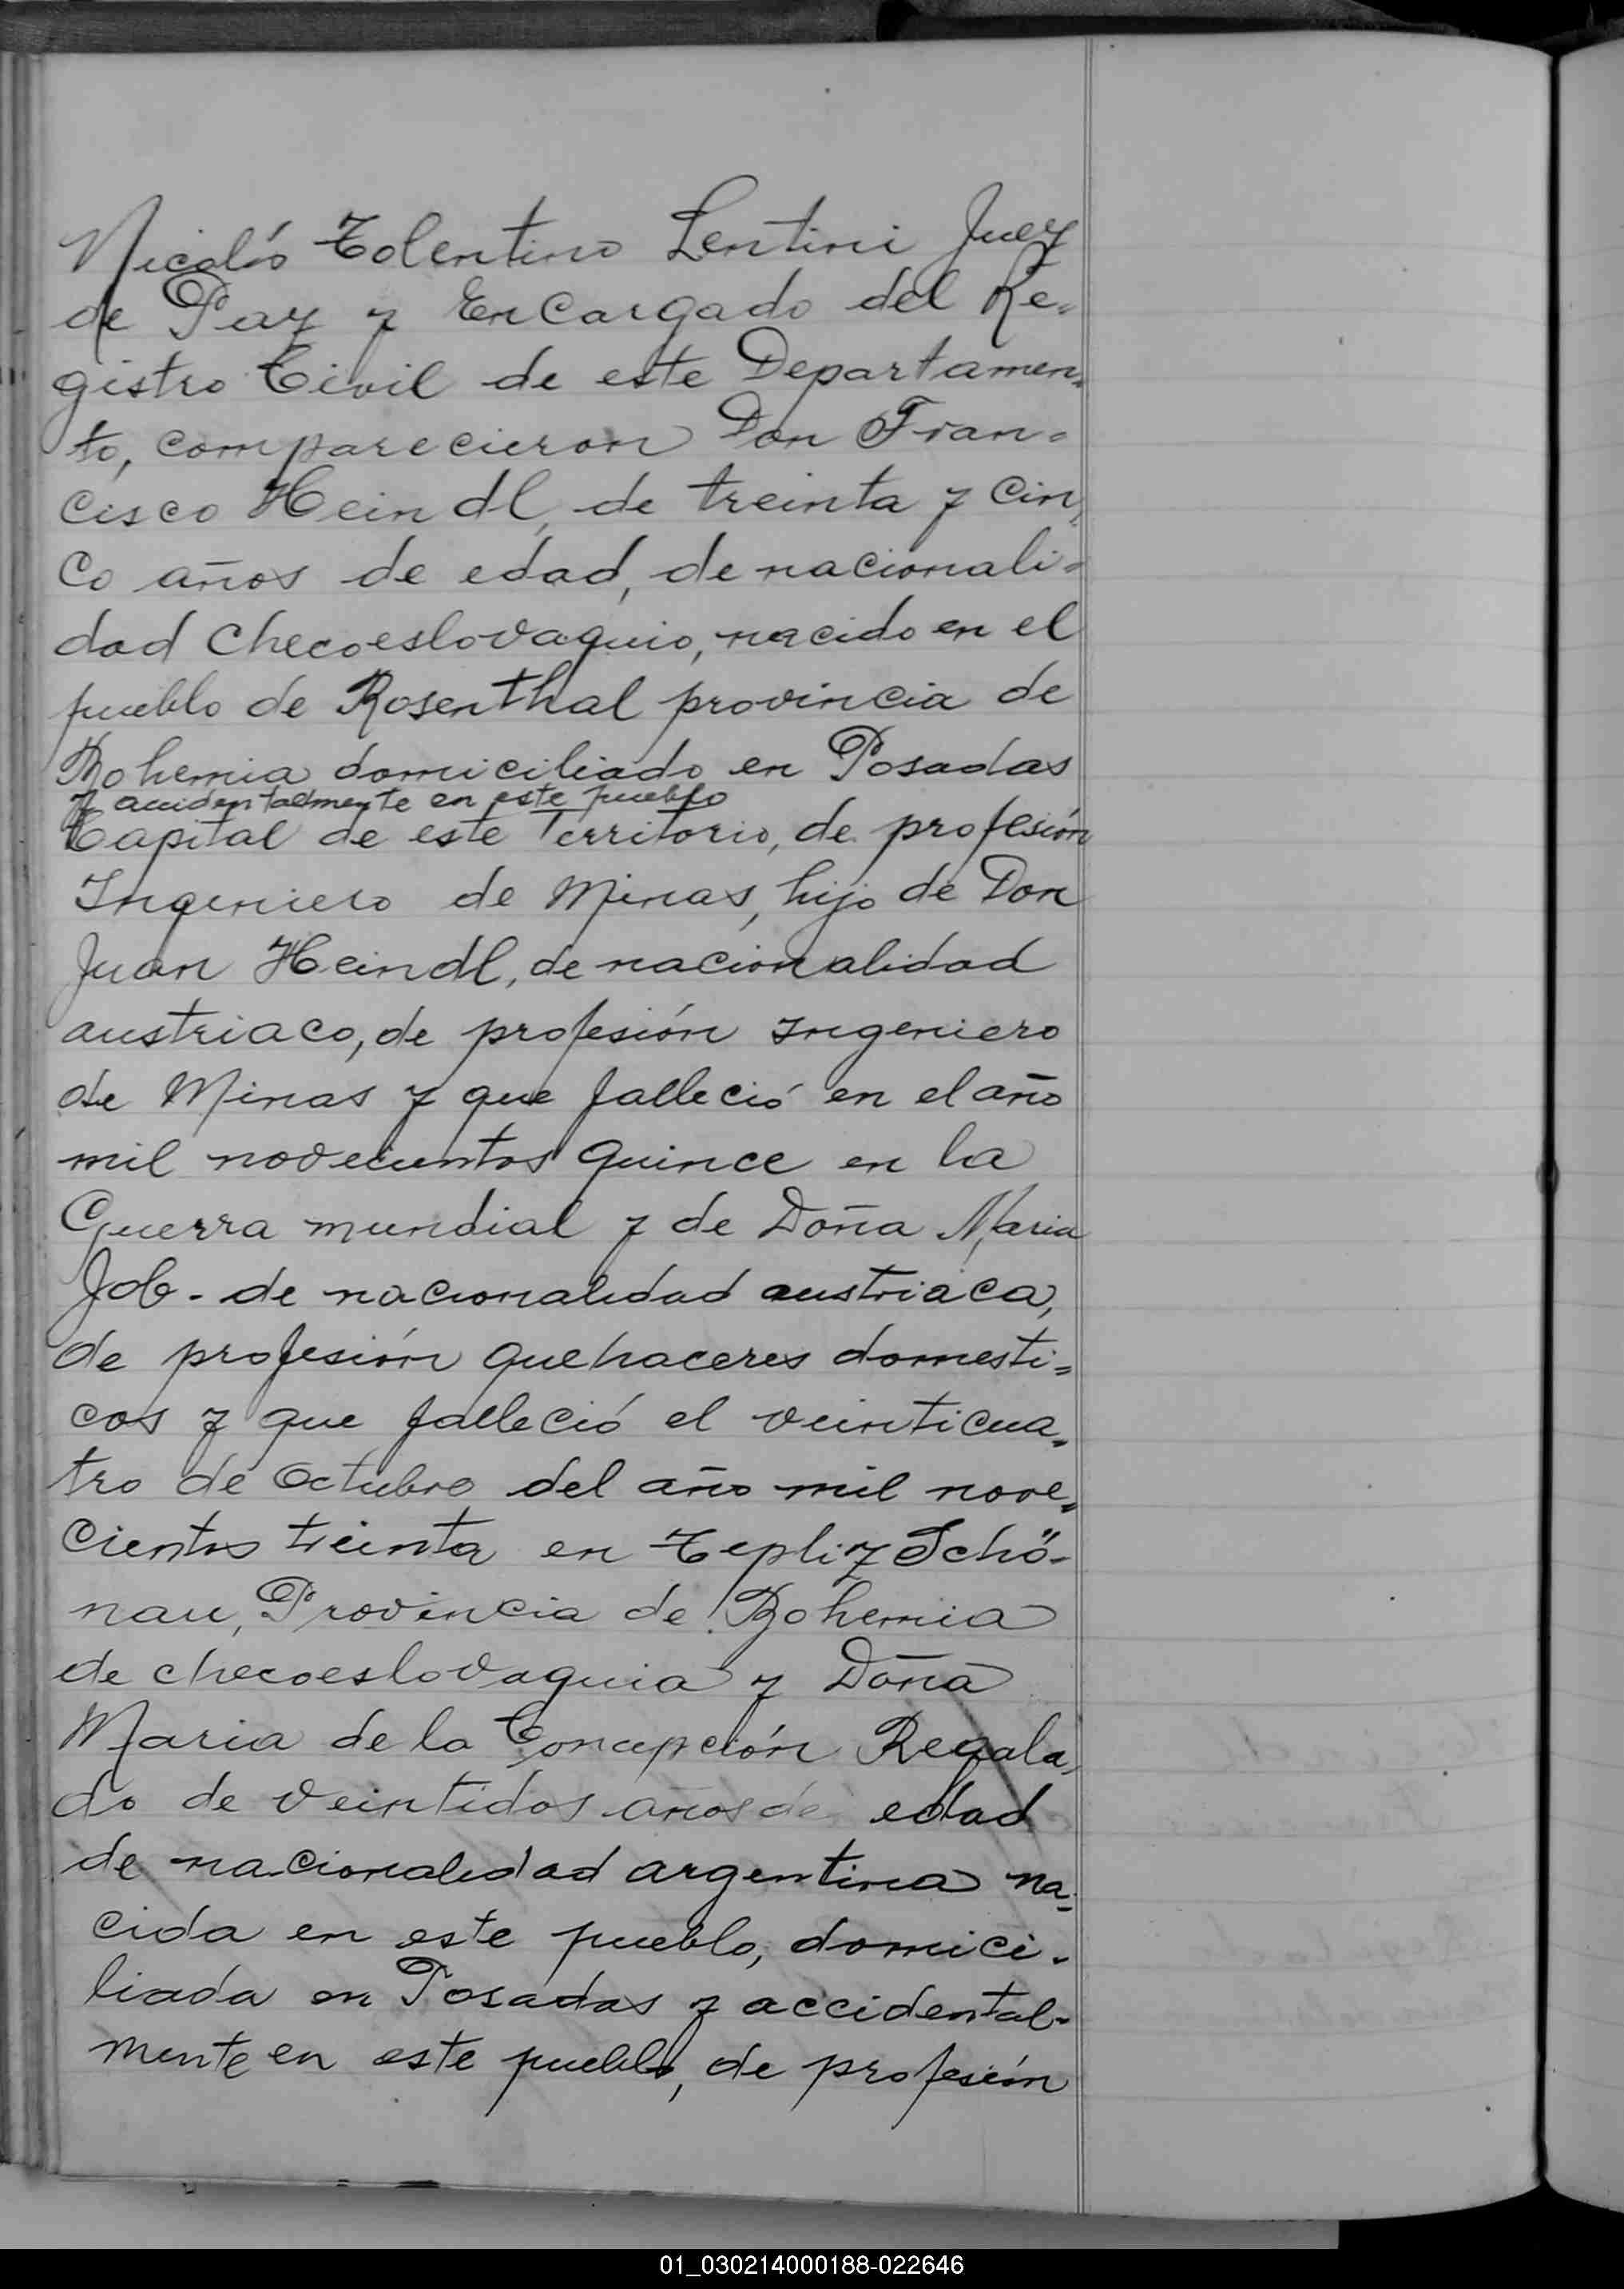 Nicolás Tolentino Lentini Juez
de Paz y Encargado del Re=
gistro Civil de este Departamen=
to, comparecieron Don Fran=
cisco Heindl, de treinta y cin,
co años de edad, de nacionali=
dad Checoeslovaquio, nacido en el
pueblo de Rosenthal provincia de
Bohemia domiciliado en Posadas
y accidentalmente en este pueblo
Capital de este Territorio, de profesión
Ingeniero de Minas, hijo de Don
Juan Heindl, de nacionalidad
austriaco, de profesión Ingeniero
de Minas y que falleció en el año
mil novecientos quince en la
Guerra mundial y de Doña Maria
Job - de nacionalidad austriaca,
de profesión quehaceres domesti=
cos y que falleció el veinticua=
tro de Octubre del año mil nove=
cientos treinta en Tepliz Schö-
nau, Provincia de Bohemia
de checoeslovaquia y Doña
Maria de la Concepción Regala,
do de veintidos años de edad
de nacionalidad argentina na=
cida en este pueblo, domici-
liada en Posadas y accidental-
mente en este pueblo, de profesión
01_030214000188-022646